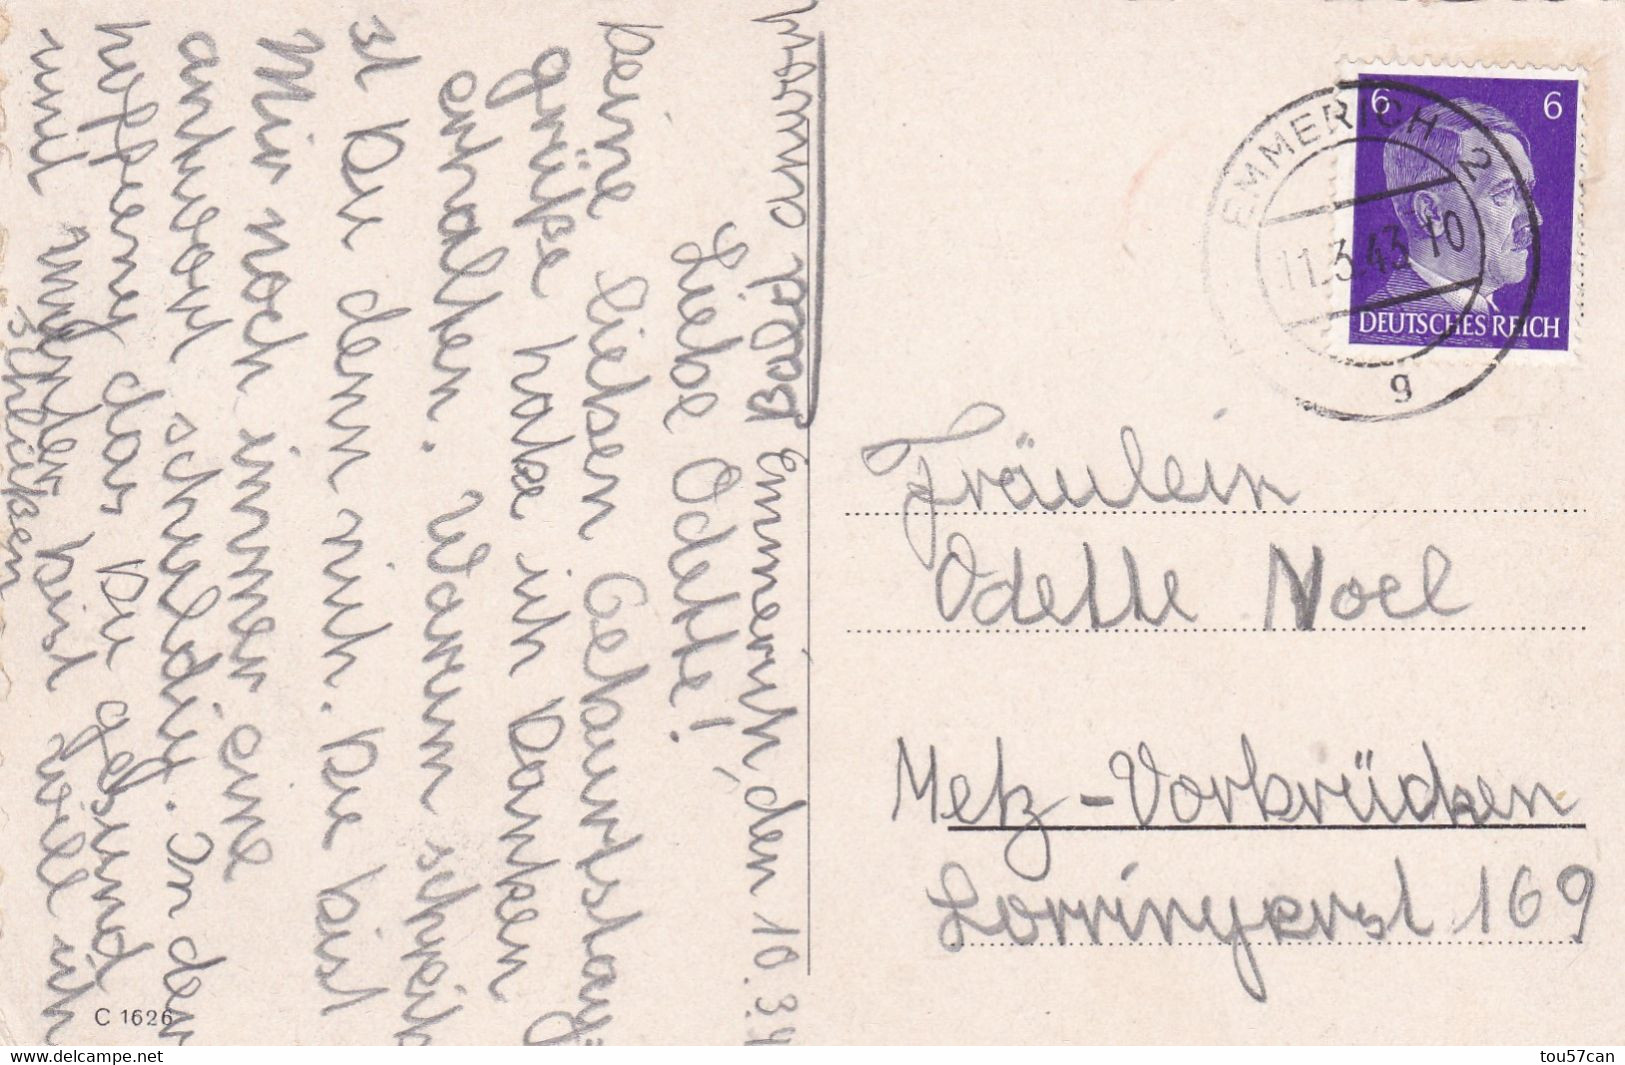 Emmerich, den 10.3.4
Liebe Odette!
Deine lieben Geburtstag=
grüße habe ich Danken
erhalten. Warum schreib
st Du denn nich. Du bist
Mir noch immer eine
antwort schuldig. In der
hoffenung das Du gesund
und munter bist will ich
schließen
Bald
6 6
EMMERICH 2
11.3.43 10
g
DEUTSCHES REICH
Fräulein
Odette Noel
Metz-Vorbrücken
169
C 1626
delcampe.net
tou57can